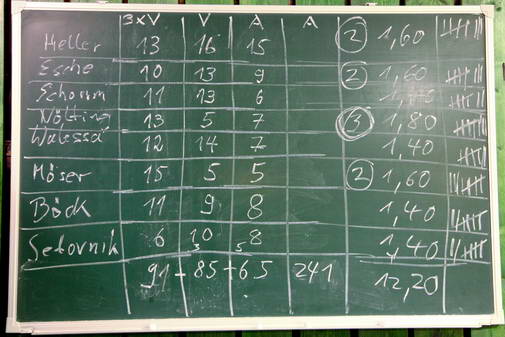 3xV V A A
Heller 13 16 15 2 1,60
Esche 10 13 9 2 1,60
Schorm 11 13 6
Nötting 13 5 7 3 1,80
Walessa 12 14 7 1,40
Möser 15 5 5 2 1,60
Böck 11 9 8 1,40
Setovnik 6 10 8 1,40
3 5
91 - 85 - 65 241 12,20